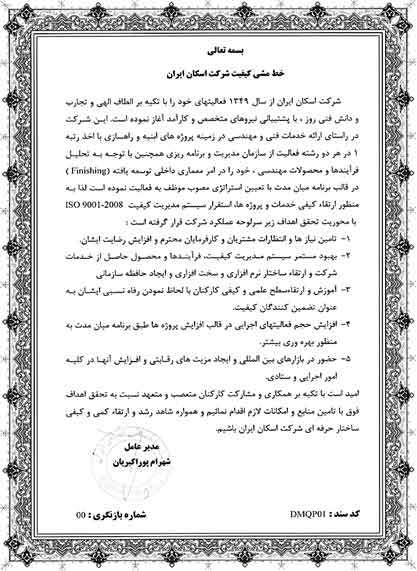 بسمه تعالی
خط مشی کیفیت شرکت اسکان ایران
شرکت اسکان ایران از سال ۱۳۴۹ فعالیتهای خود را با تکیه بر الطاف الهی و تجارب
و دانش فنی روز ، با پشتیبانی نیروهای متخصص و کارآمد آغاز نموده است. این شرکت
در راستای ارائه خدمات فنی و مهندسی در زمینه پروژه های ابنیه و راهسازی با اخذ رتبه
۱ در هر دو رشته فعالیت از سازمان مدیریت و برنامه ریزی همچنین با توجه به تحلیل
فرآیندها و محصولات مهندسی ، خود را در امر معماری داخلی توسعه یافته (Finishing )
در قالب برنامه میان مدت با تعیین استراتژی مصوب موظف به فعالیت نموده است لذا به
منظور ارتقاء کیفی خدمات و پروژه ها، استقرار سیستم مدیریت کیفیت ISO 9001-2008
با محوریت تحقق اهداف زیر سرلوحه عملکرد شرکت قرار گرفته است :
۱- تامین نیاز ها و انتظارات مشتریان و کارفرمایان محترم و افزایش رضایت ایشان.
۲- بهبود مستمر سیستم مدیریت کیفیت، فرآیندها و محصول حاصل از خدمات
شرکت و ارتقاء ساختار نرم افزاری و سخت افزاری و ایجاد حافظه سازمانی
۳- آموزش و ارتقاءسطح علمی و کیفی کارکنان با لحاظ نمودن رفاه نسبی ایشان به
عنوان تضمین کنندگان کیفیت.
۴- افزایش حجم فعالیتهای اجرایی در قالب افزایش پروژه ها طبق برنامه میان مدت به
منظور بهره وری بیشتر.
۵- حضور در بازارهای بین المللی و ایجاد مزیت های رقابتی و افزایش آنها در کلیه
امور اجرایی و ستادی.
امید است با تکیه بر همکاری و مشارکت کارکنان متعصب و متعهد نسبت به تحقق اهداف
فوق با تامین منابع و امکانات لازم اقدام نمائیم و همواره شاهد رشد و ارتقاء کمی و کیفی
ساختار حرفه ای شرکت اسکان ایران باشیم.
مدیر عامل
شهرام پوراکبریان
کد سند : DMQP01
شماره بازنگری : 00